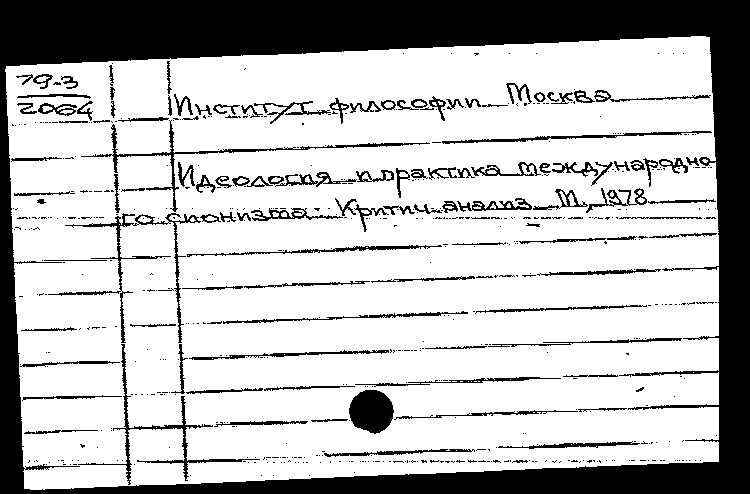 79-3
2064
Институт философии. Москва
Идеология и практика международно-
го сионизма: Критич. анализ. М., 1978